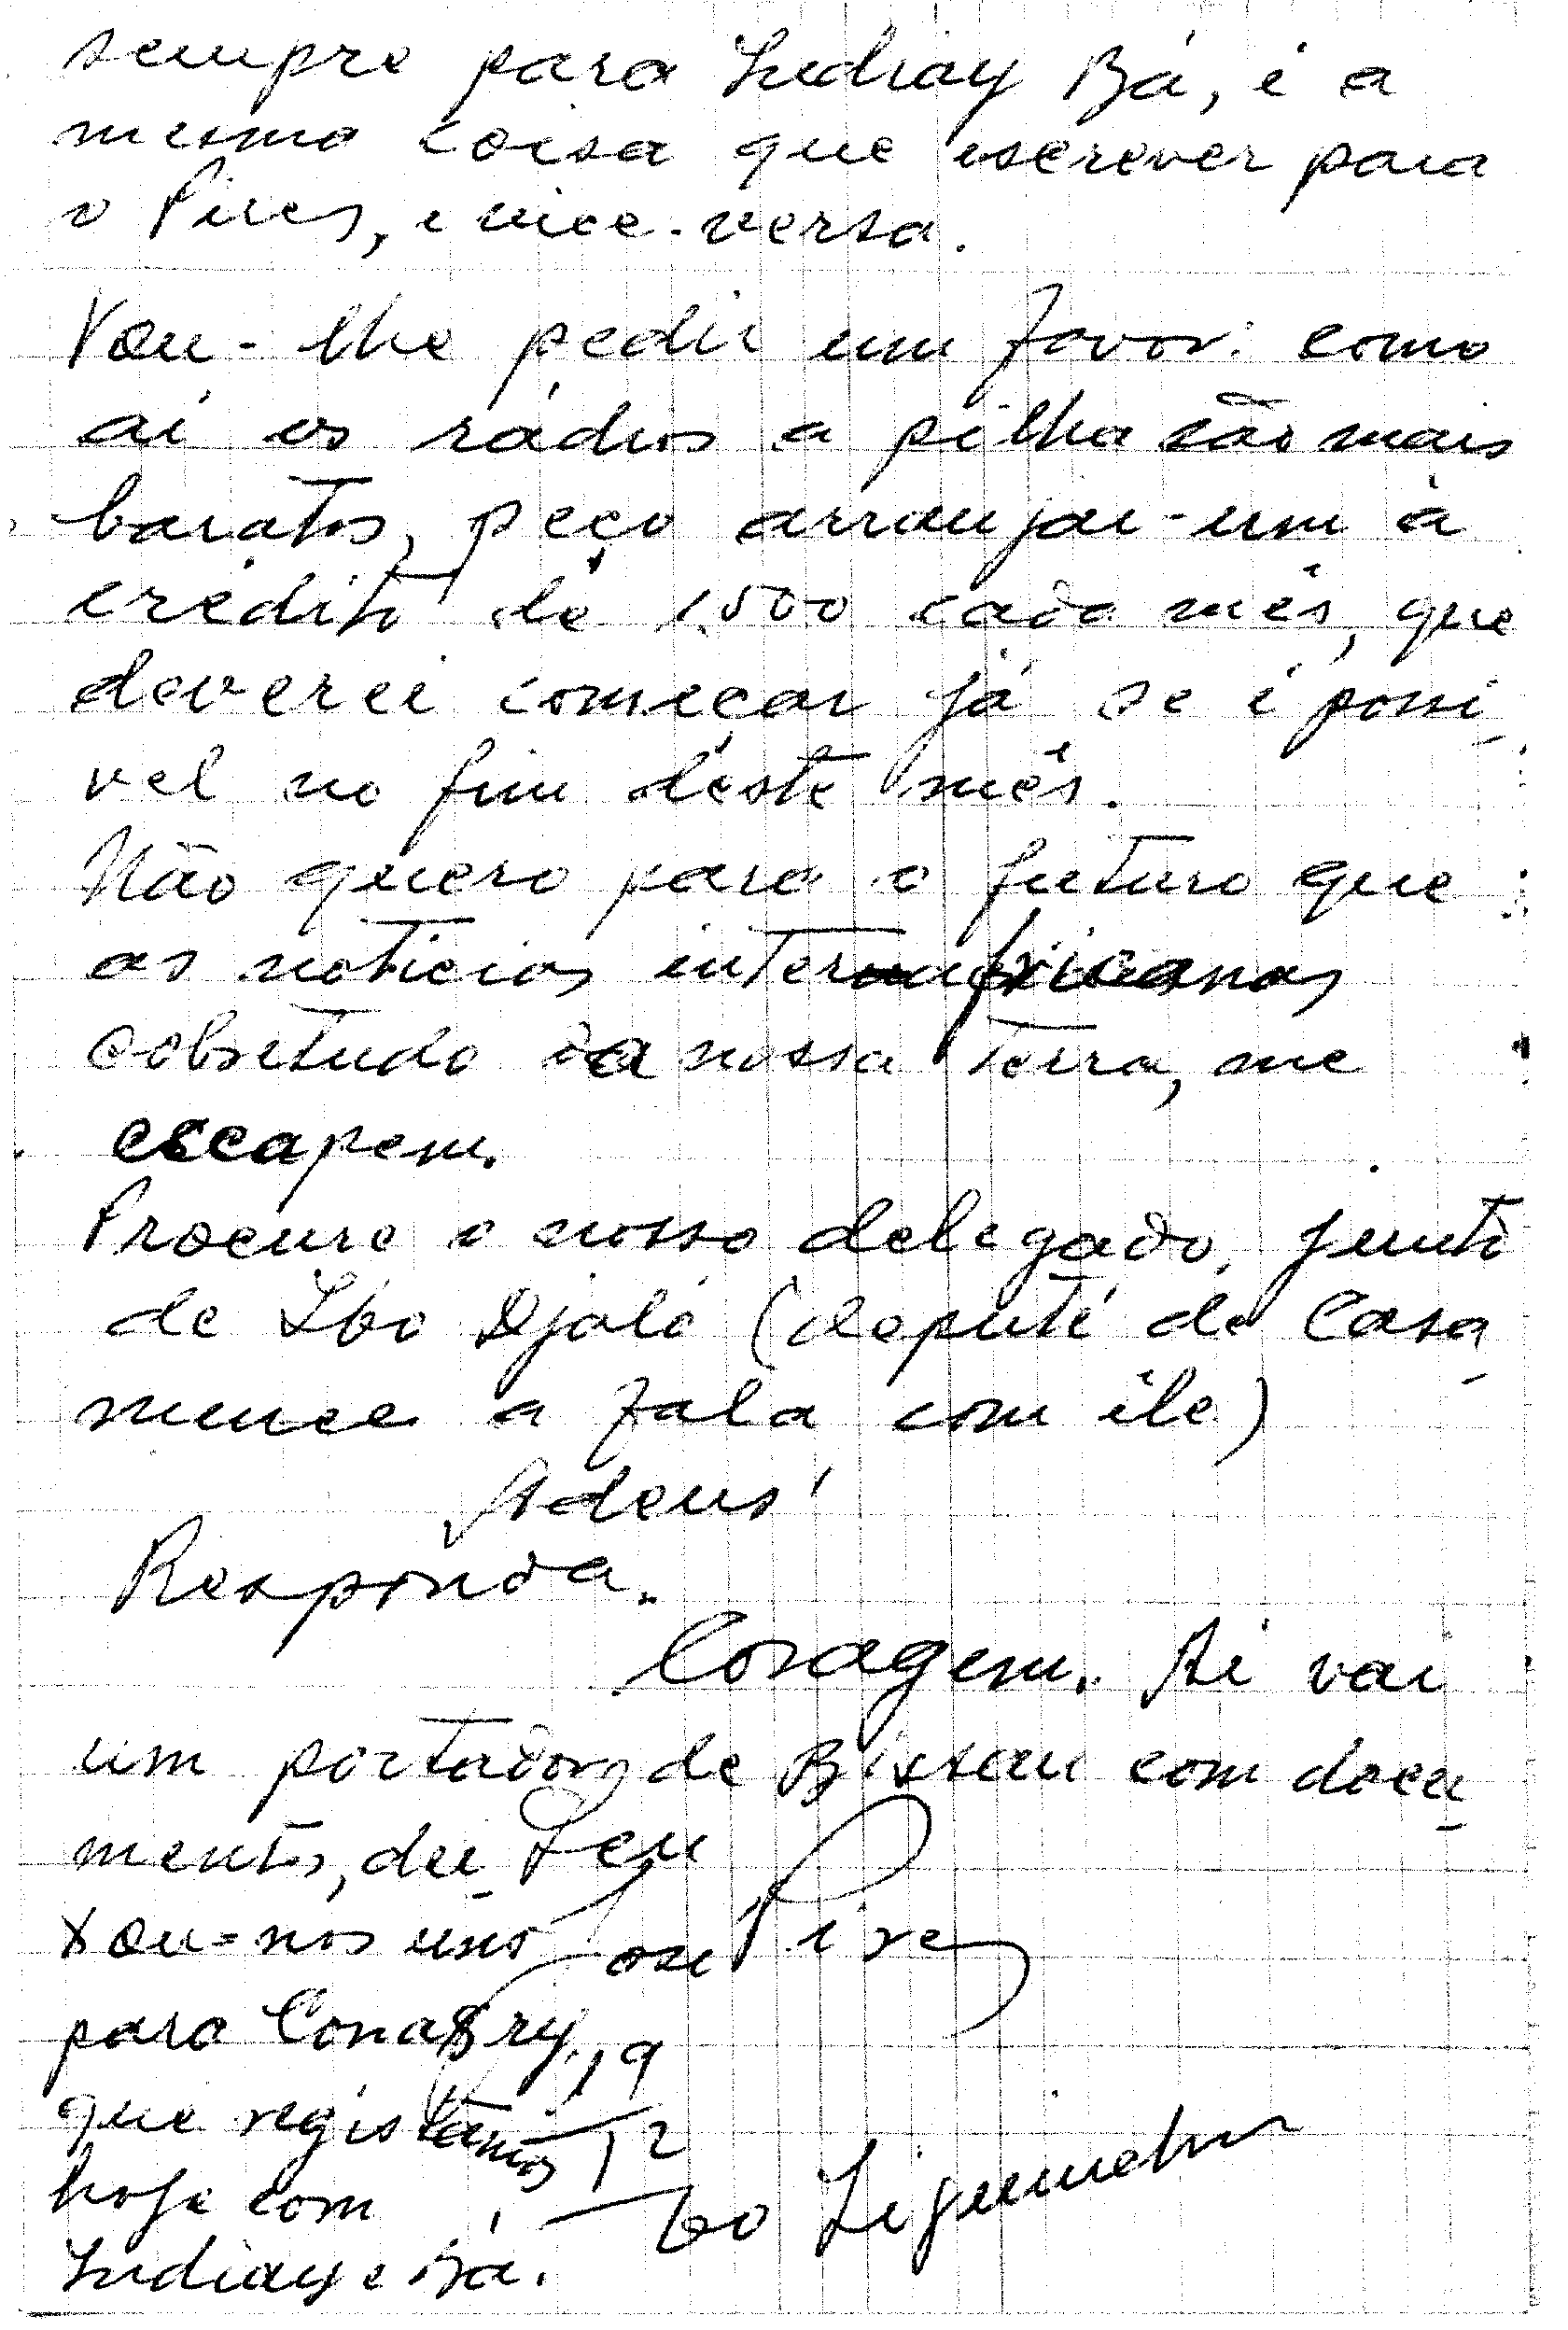 sempre para Indiay Bá, é a
mesma coisa que escrever para
o Pires, e vice-versa.
Vou-lhe pedir um favor: como
aí os rádios a pilha são mais
baratos, peço arranjar-um à
crédito de 1.500 cada mês, que
deverei começar já se é possi-
vel no fim dêste mês.
Não quero para o futuro que
as noticias interafricanas
sobretudo da nossa terra, me
escapem.
Procure o nosso delegado, junto
de Ibo Djaló (deputé de Casa-
mance a fala com êle)
Adeus!
Responda.
Coragem. Aí vai
um portador de Bissau com docu-
mentos, dei
xou-nos uns
para Conakry,
que registamos
hoje com
Indiaye Bá.
Seu
Pires
19
12
60 Ziguinchor